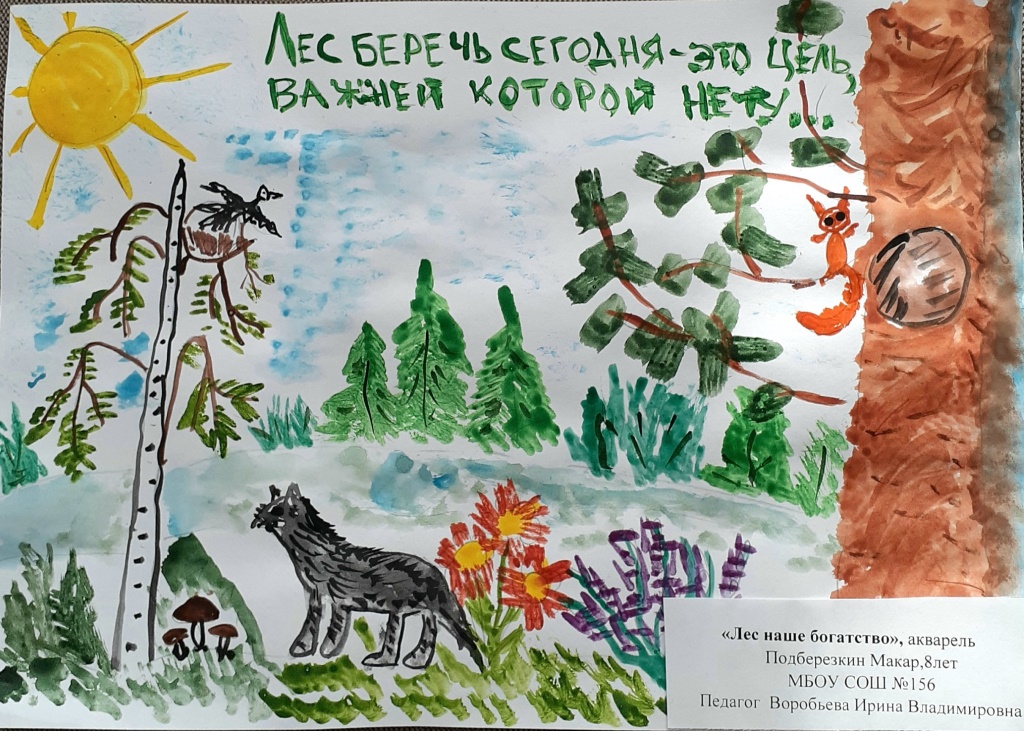 ЛЕС БЕРЕЧЬ СЕГОДНЯ - ЭТО ЦЕЛЬ,
ВАЖНЕЙ КОТОРОЙ НЕТУ...
«Лес наше богатство», акварель
Подберезкин Макар,8лет
МБОУ СОШ №156
Педагог Воробьева Ирина Владимировна